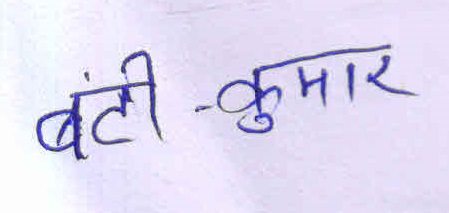 बंटी -कुमार